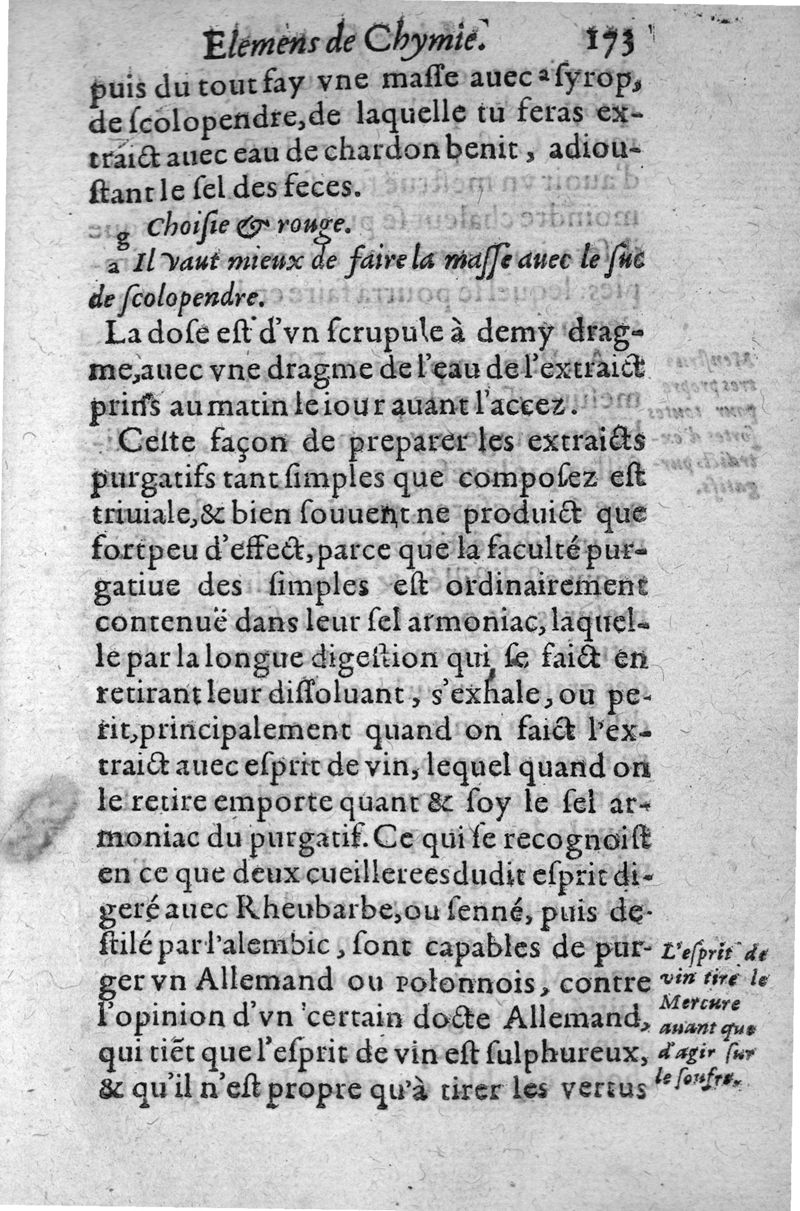 Elemens de Chymie. 173
puis du tout fay vne masse auec a syrop,
de scolopendre, de laquelle tu feras ex-
traict auec eau de chardon benit, adiou-
stant le sel des feces.
g Choisie & rouge.
a Il vaut mieux de faire la masse auec le suc
de scolopendre.
La dose est d'vn scrupule à demy drag-
me, auec vne dragme de l'eau de l'extraict
prinſs au matin le iour auant l'accez.
Ceste façon de preparer les extraicts
purgatifs tant simples que composez est
triuiale, & bien souuent ne produict que
fort peu d'effect, parce que la faculté pur-
gatiue des simples est ordinairement
contenuë dans leur sel armoniac, laquel-
le par la longue digestion qui se faict en
retirant leur dissoluant, s'exhale, ou pe-
rit, principalement quand on faict l'ex-
traict auec esprit de vin, lequel quand on
le retire emporte quant & soy le sel ar-
moniac du purgatif. Ce qui se recognoist
en ce que deux cueillerees dudit esprit di-
geré auec Rheubarbe, ou senné, puis de-
stilé par l'alembic, sont capables de pur-
ger vn Allemand ou Polonnois, contre
l'opinion d'vn certain docte Allemand,
qui tiẽt que l'esprit de vin est sulphureux,
& qu'il n'est propre qu'à tirer les vertus
L'esprit de
vin tire le
Mercure
auant que
d'agir sur
le soufre.